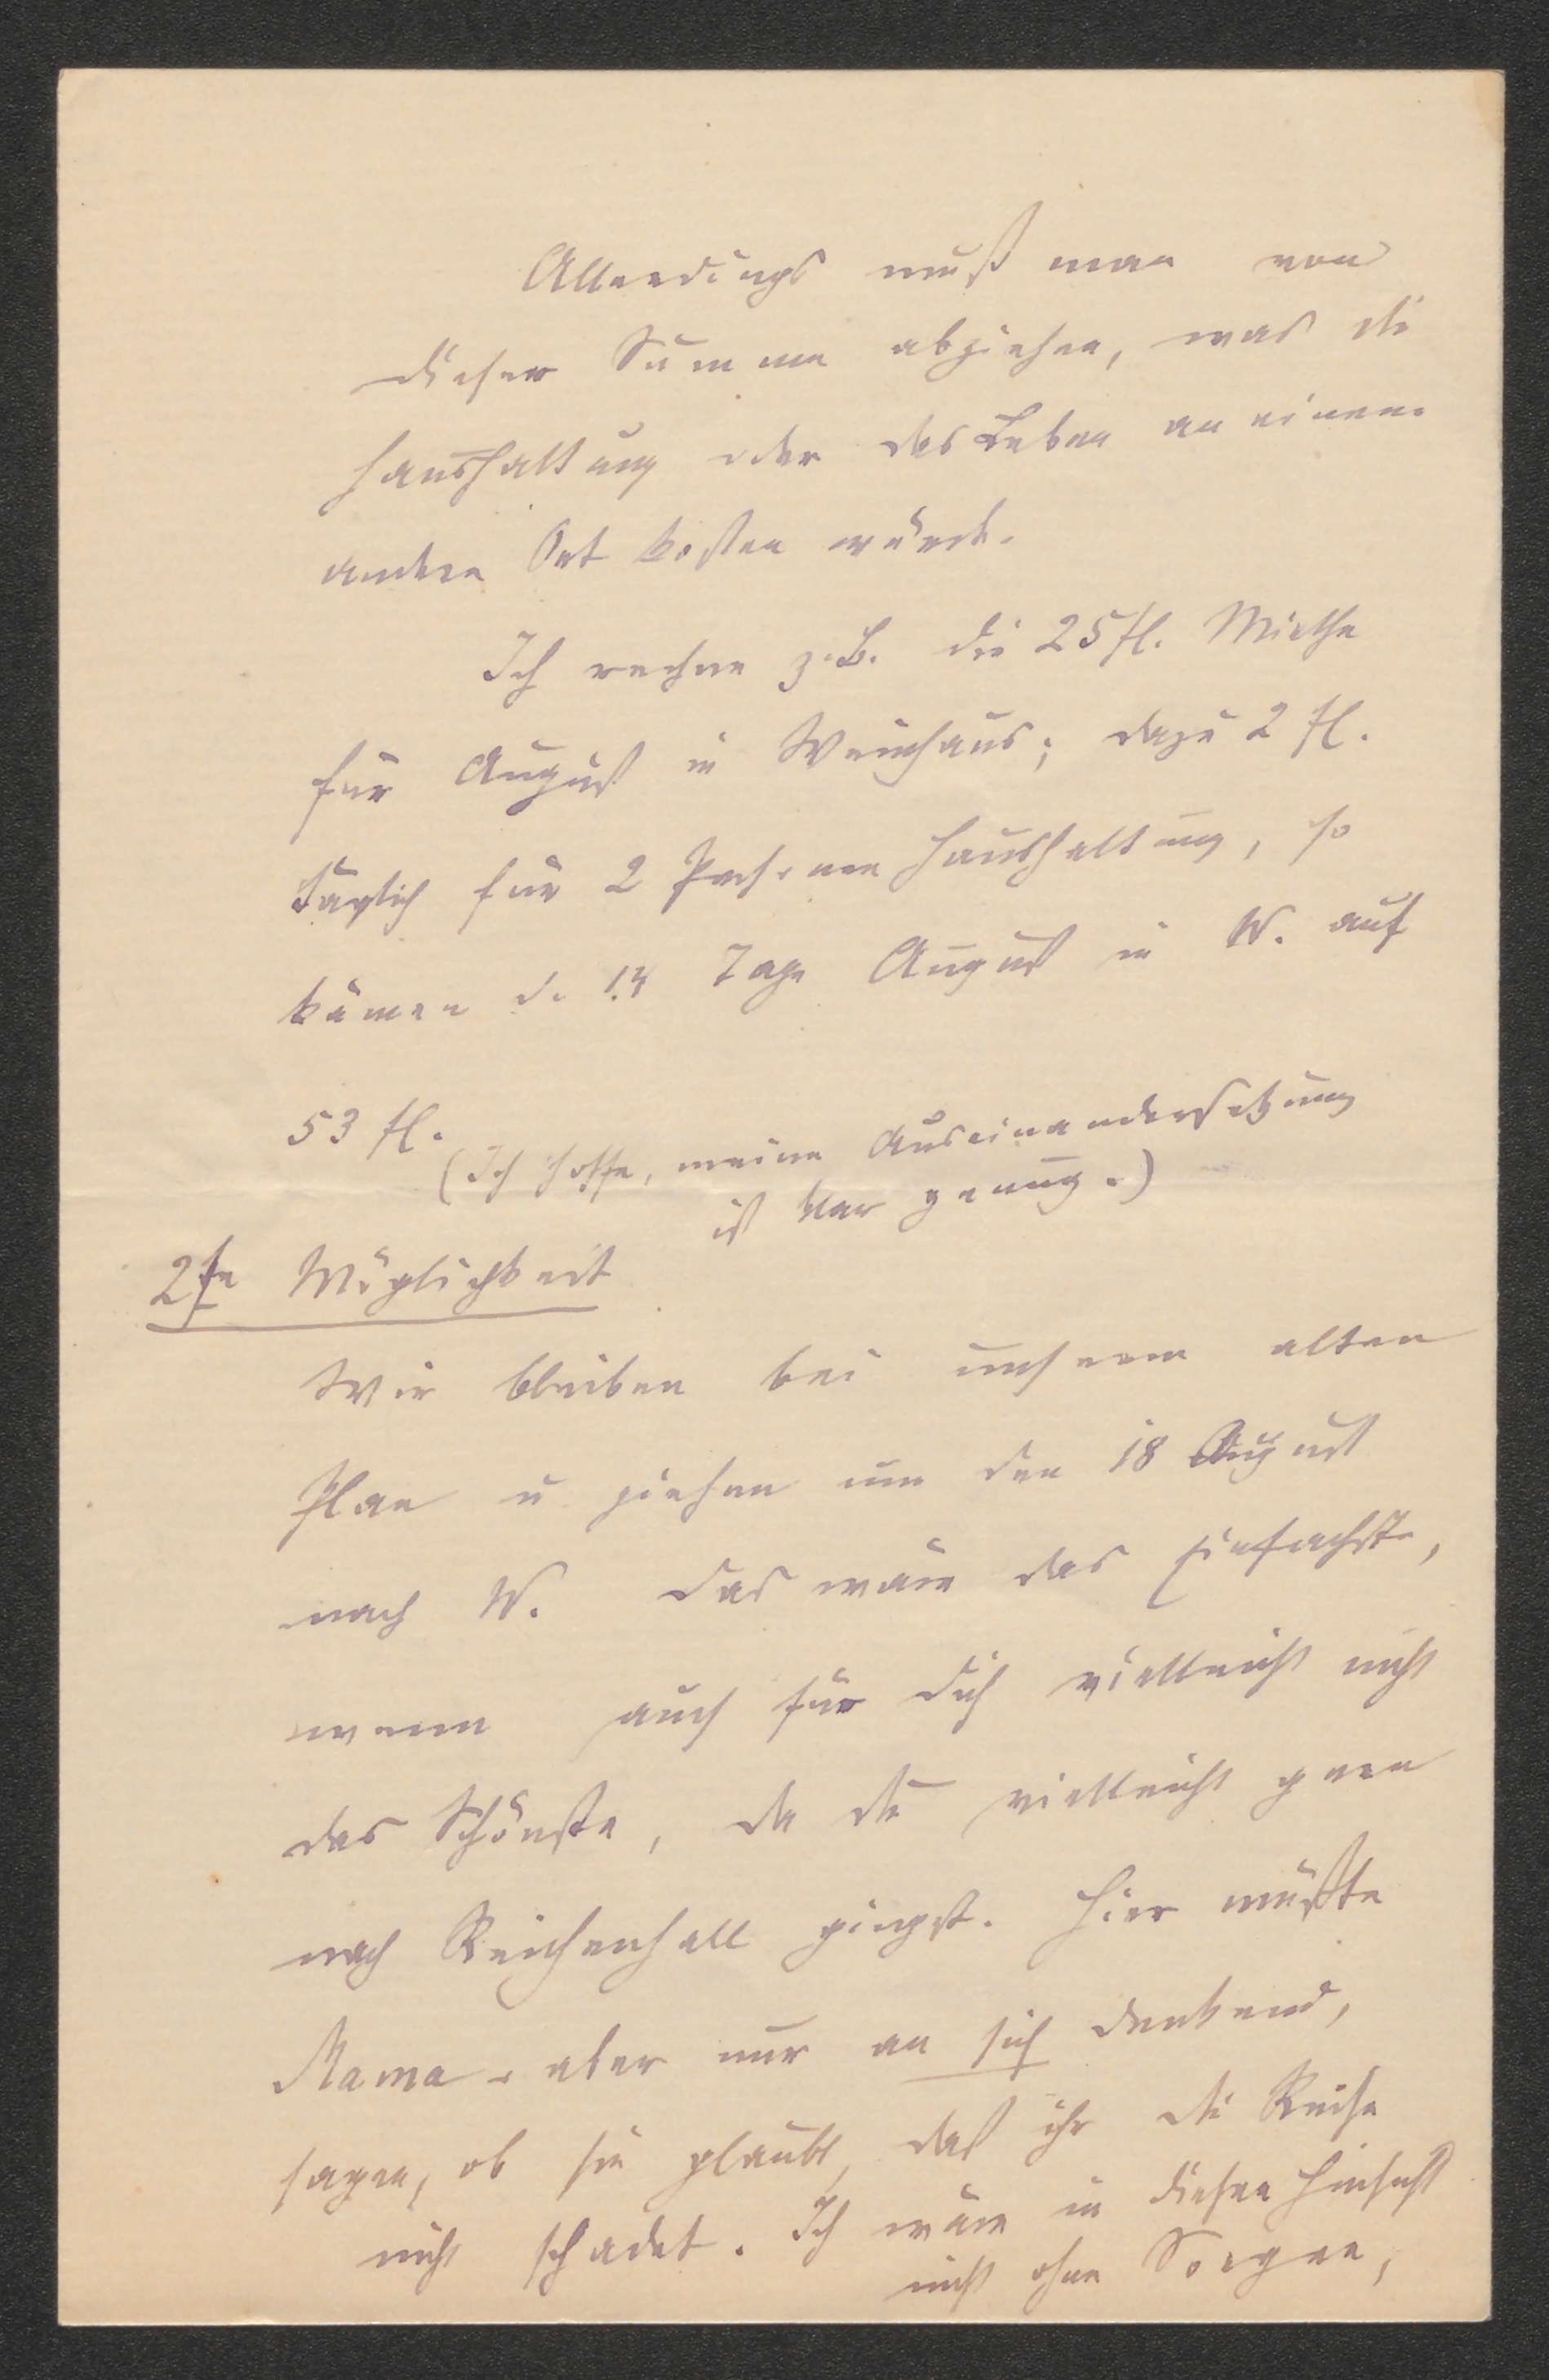 Allerdings muß man von
dieser Summe abziehen, was die
Haushaltung oder das Leben an einem
andern Ort kosten würde.
Ich rechne z. B. die 25 fl. Miethe
für August in Weinhaus; dazu 2 fl.
täglich für 2 Personen Haushaltung, so
kämen d. 14 Tage August in W. auf
53 fl.
(Ich hoffe, meine Auseinandersetzung
ist klar genug.)
2te Möglichkeit
Wir bleiben bei unserem alten
Plan u ziehen um den 18 August
nach W. Das wäre das Einfachste,
wenn auch für dich vielleicht nicht
das Schönste, da du vielleicht gern
nach Reichenhall gingst. Hier müßte
Mama - aber nur an sich denkend,
sagen, ob sie glaubt, daß ihr die Reise
nicht schadet. Ich wäre in dieser Hinsicht
nicht ohne Sorgen,